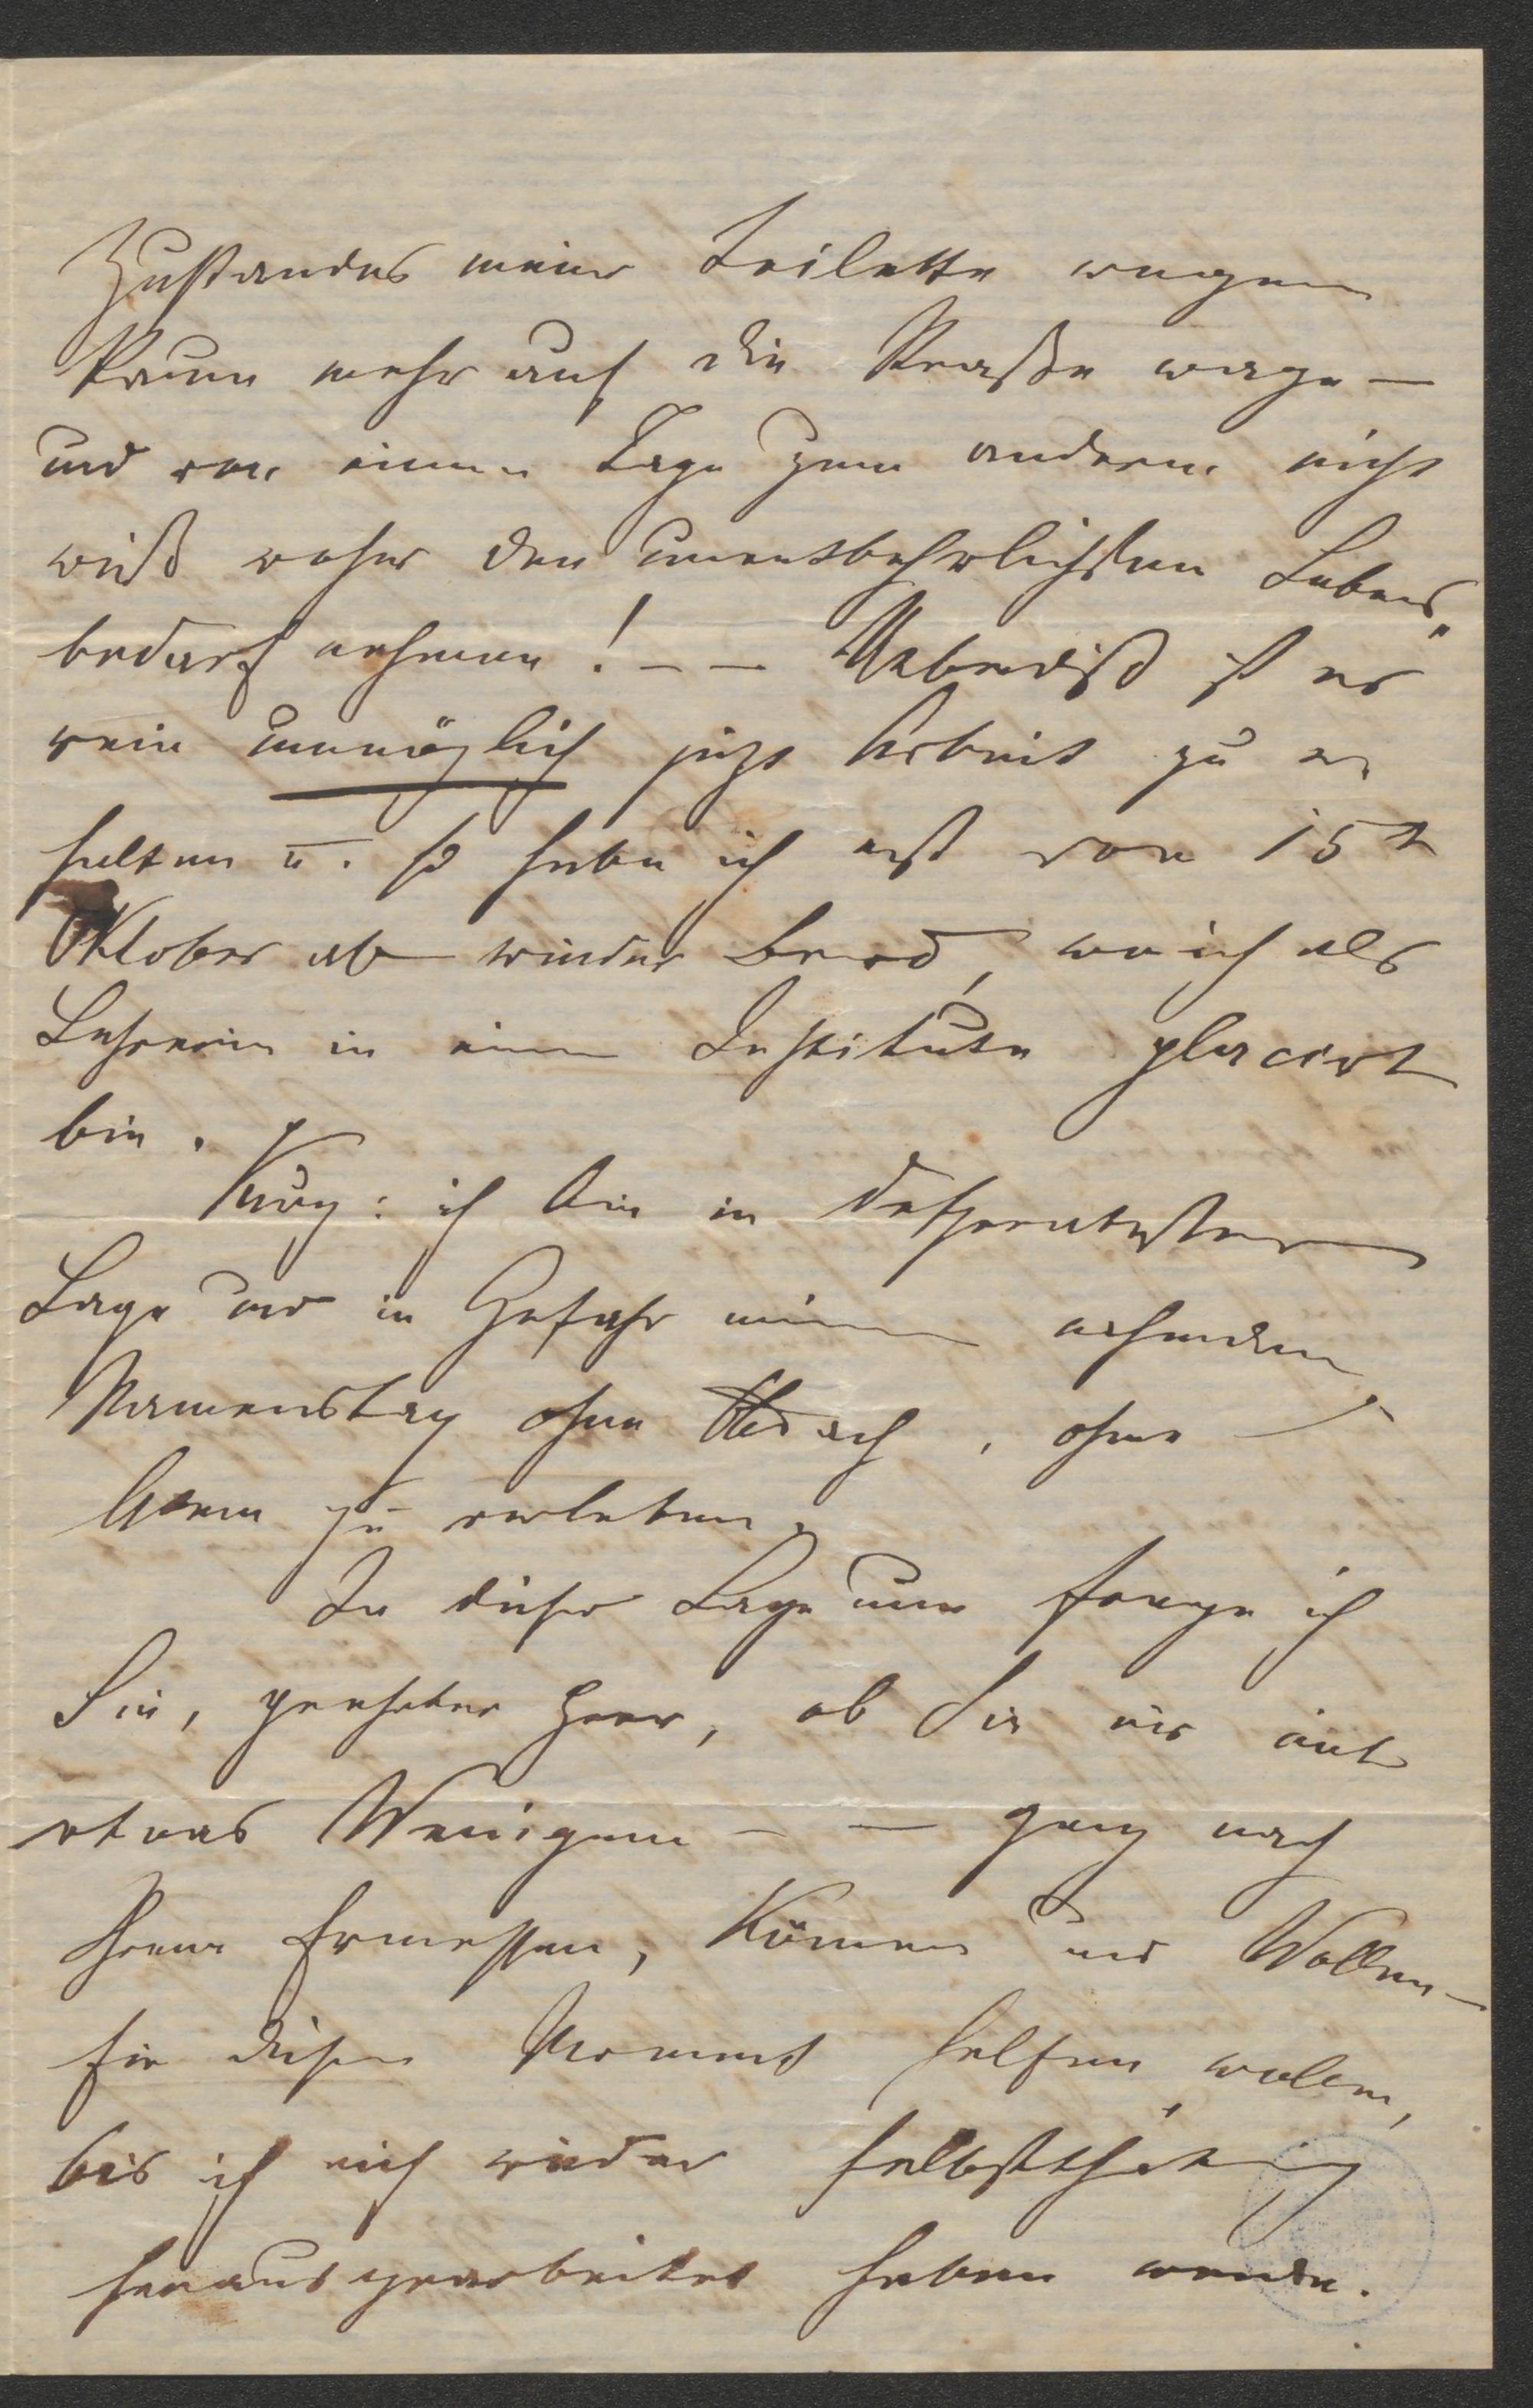 Zustandes meiner Toilette wegen
kaum mehr auf die Straße wage —
und von einem Tage zum andern nicht
weiß woher den unentbehrlichsten Lebens„
bedarf nehmen! — — Ueberdiß ist es
rein unmöglich jezt Arbeit zu er
halten u. so habe ich erst vom 15t
Oktober ab wieder Brod, wo ich als
Lehrerin in einem Institute placirt
bin.
Kurz: ich bin in desperatester
Lage und in Gefahr meinen nahenden
Namenstag ohne Obdach, ohne
zu verleben.
In dieser Lage nun frage ich
Sie, geehrter Herr, ob Sie mir mit
etwas Wenigem — — ganz nach
Ihrem Ermessen, Können und Wollen —
für diesen Moment helfen wollen,
bis ich mich wieder selbstthätig
herausgearbeitet haben werde.